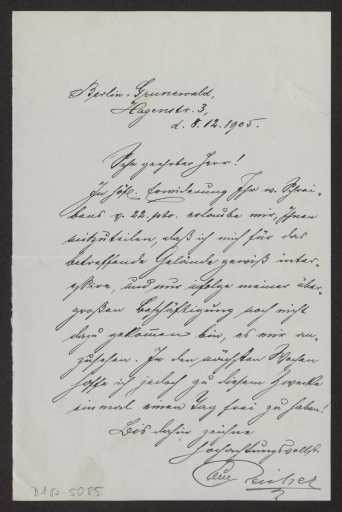 Berlin-Grunewald,
Hagenstr. 3,
d. 8.12.1905.
Sehr geehrter Herr!
In höfl. Erwiderung Ihr w. Schrei-
bens v. 22. pto. erlaube mir, Ihnen
mitzuteilen, daß ich mich für das
betreffende Gelände gewiß inter-
essire, und nur infolge meiner über-
großen Beschäftigung noch nicht
dazu gekommen bin, es mir an-
zusehen. In den nächsten Wochen
hoffe ich jedoch zu diesem Zwecke
einmal einen Tag frei zu haben!
Bis dahin zeichne
hochachtungsvollst
D182-5085